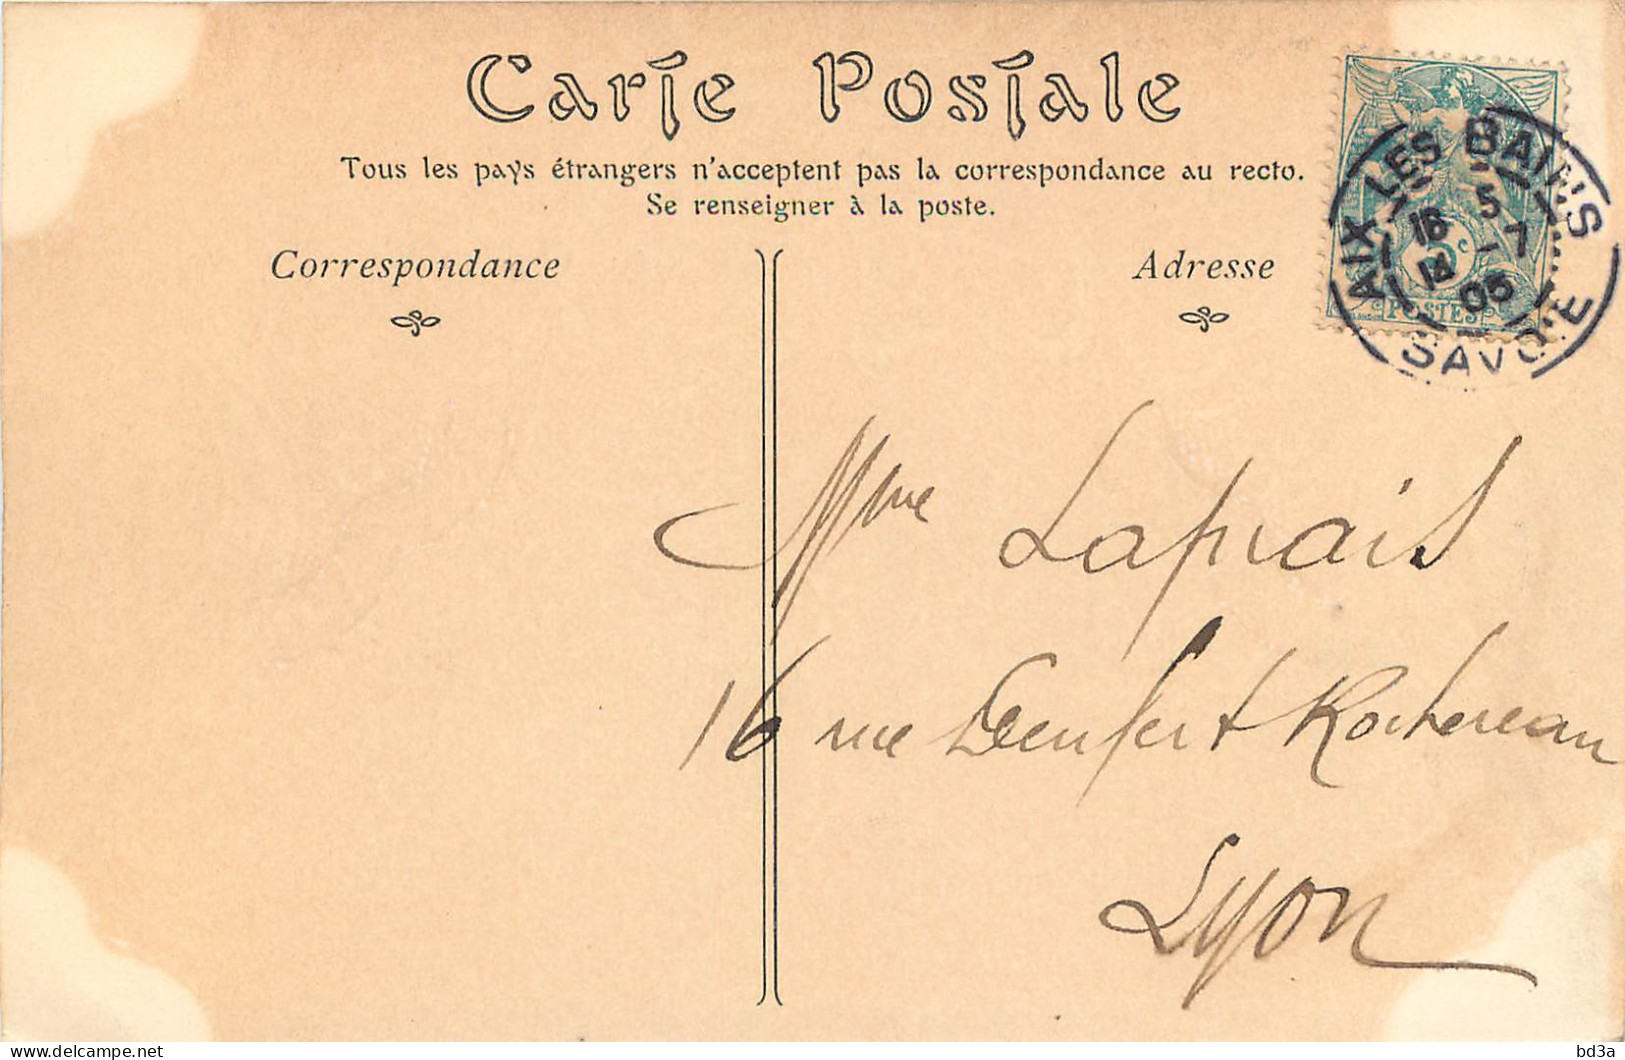 Carte Postale
Tous les pays étrangers n'acceptent pas la correspondance au recto.
Se renseigner à la poste.
Correspondance
Adresse
AIX-LES-BAINS
5
-7
05
SAVOIE
5c
POSTES
Mme Laprais
16 rue Denfert Rochereau
Lyon
bd3a